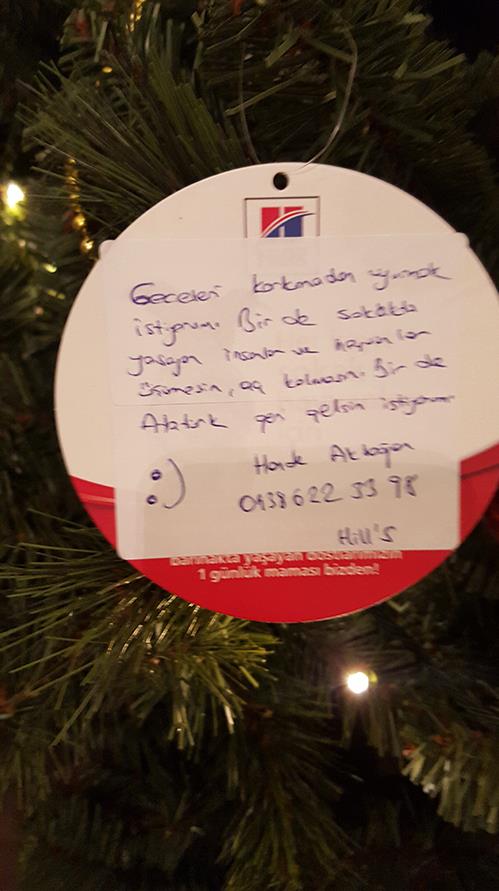 Geceleri korkmadan uyumak
istiyorum. Bir de sokakta
yaşayan insanlar ve hayvanlar
üşümesin, aç kalmasın. Bir de
Atatürk geri gelsin istiyorum.
:)
Hande Akdoğan
0438 622 33 98
Hill's
barınakta yaşayan dostlarımızın
1 günlük maması bizden!